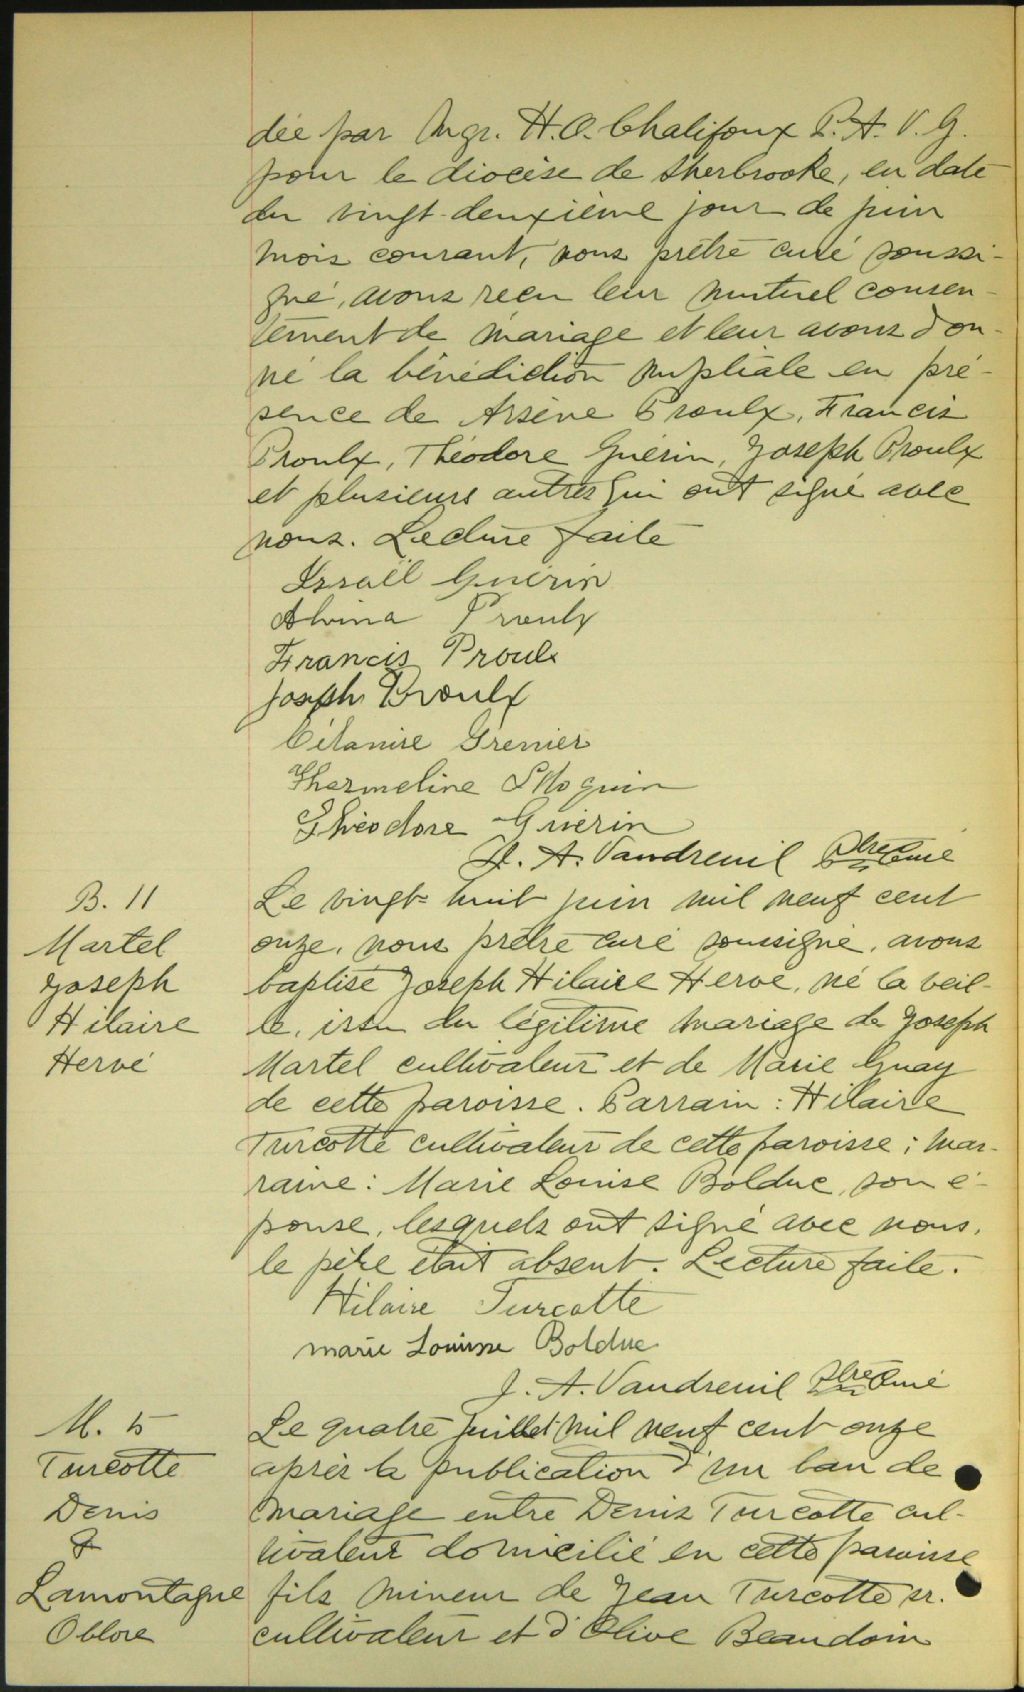 dée par Mgr. H.O. Chalifoux P.A. V.G.
pour le diocèse de Sherbrooke, en date
du vingt-deuxième jour de juin
mois courant, nous prêtre curé soussi-
gné, avons reçu leur mutuel consen-
tement de mariage et leur avons don-
né la bénédiction nuptiale en pré-
sence de Arsène Proulx, Francis
Proulx, Théodore Guérin, Joseph Proulx
et plusieurs autres qui ont signé avec
nous. Lecture faite
Israël Guérin
Alvina Proulx
Francis Proulx
Joseph Proulx
Célanire Grenier
Théodore Guérin
J. A. Vaudreuil Ptre Curé
B. 11
Martel
Joseph
Hilaire
Hervé
Le vingt-huit juin mil neuf cent
onze, nous prêtre curé soussigné, avons
baptisé Joseph Hilaire Hervé, né la veil-
le, issu du légitime mariage de Joseph
Martel cultivateur et de Marie Guay
de cette paroisse. Parrain : Hilaire
Turcotte cultivateur de cette paroisse ; mar-
raine : Marie Louise Bolduc, son é-
pouse, lesquels ont signé avec nous.
le père était absent. Lecture faite.
Hilaire Turcotte
marie Louisse Bolduc
J. A. Vaudreuil Ptre Curé
M. 5
Turcotte
Denis
&
Lamontagne
Oblore
Le quatre juillet mil neuf cent onze
après la publication d'un ban de
mariage entre Denis Turcotte cul-
tivateur domicilié en cette paroisse
fils mineur de Jean Turcotte sr.
cultivateur et d'Olive Beaudoin